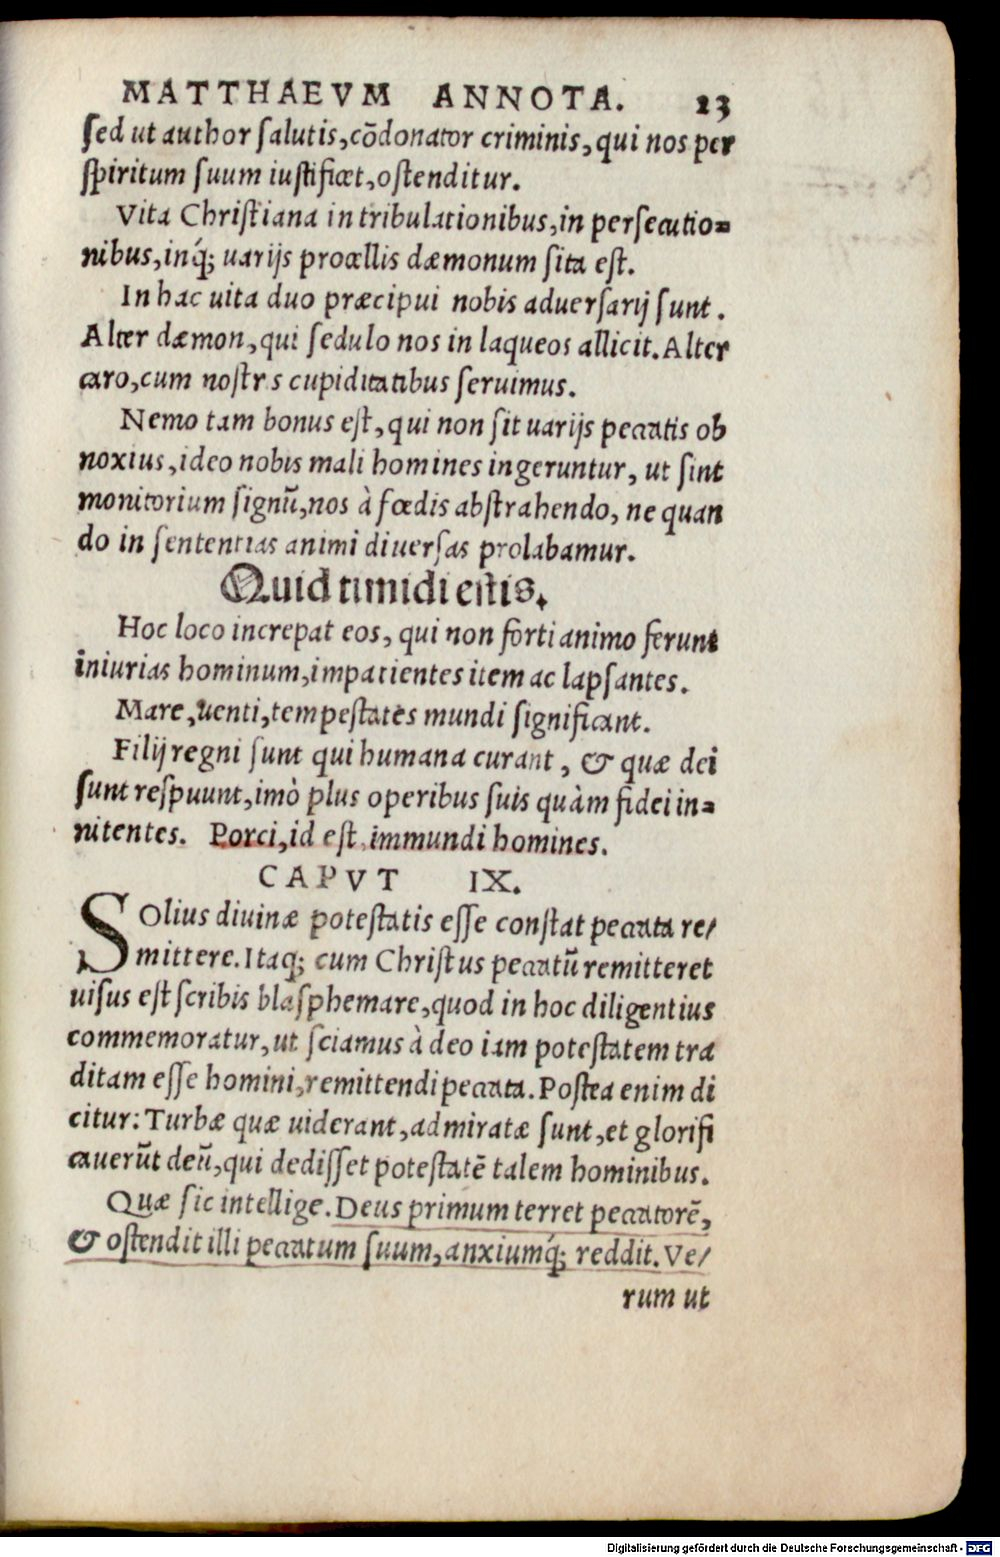 MATTHAEVM ANNOTA. 23
ſed ut author ſalutis, cõdonator criminis, qui nos per
ſpiritum ſuum iuſtificet, oſtenditur.
Vita Chriſtiana in tribulationibus, in perſecutio=
nibus, inq́; uarijs procellis dæmonum ſita eſt.
In hac uita duo præcipui nobis aduerſarij ſunt.
Alter dæmon, qui ſedulo nos in laqueos allicit. Alter
caro, cum noſtr s cupiditatibus ſeruimus.
Nemo tam bonus eſt, qui non ſit uarijs peccatis ob
noxius, ideo nobis mali homines ingeruntur, ut ſint
monitorium ſignũ, nos à fœdis abſtrahendo, ne quan
do in ſententias animi diuerſas prolabamur.
Quid timidi eſtis.
Hoc loco increpat eos, qui non forti animo ferunt
iniurias hominum, impatientes item ac lapſantes.
Mare, uenti, tempeſtates mundi ſignificant.
Filij regni ſunt qui humana curant, & quæ dei
ſunt reſpuunt, imò plus operibus ſuis quàm fidei in=
nitentes. Porci, id eſt immundi homines.
CAPVT IX.
SOlius diuinæ poteſtatis eſſe conſtat peccata re/
mittere. Itaq; cum Chriſtus peccatũ remitteret
uiſus eſt ſcribis blaſphemare, quod in hoc diligentius
commemoratur, ut ſciamus à deo iam poteſtatem tra
ditam eſſe homini, remittendi peccata. Poſtea enim di
citur: Turbæ quæ uiderant, admiratæ ſunt, et glorifi
cauerũt deũ, qui dediſſet poteſtatẽ talem hominibus.
Quæ ſic intellige. Deus primum terret peccatorẽ,
& oſtendit illi peccatum ſuum, anxiumq́; reddit. Ve/
rum ut
Digitalisierung gefördert durch die Deutsche Forschungsgemeinschaft - DFG